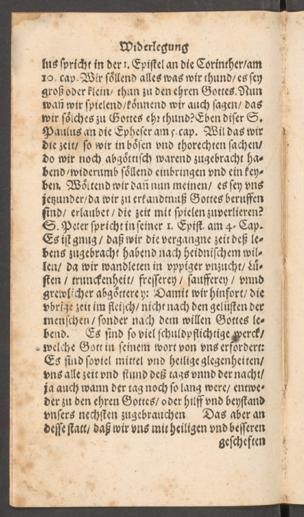 Widerlegung
lus spricht in der 1. Epistel an die Corinther/am
10. cap. Wir söllend alles was wir thund/es sey
groß oder klein/ thun zu den ehren Gottes. Nun
wañ wir spielend/könnend wir auch sagen/das
wir sölches zu Gottes ehr thund? Eben diser S.
Paulus an die Epheser am 5. cap. Wil das wir
die zeit/ so wir in bösen vnd thorechten sachen/
do wir noch abgöttisch warend zugebracht ha-
bend/widerumb söllend einbringen vnd ein key-
ben. Wöltend wir dañ nun meinen/ es sey vns
jetzunder/da wir zu erkandtnuß Gottes beruffen
sind/ erlaubet/ die zeit mit spielen zuverlieren?
S. Peter spricht in seiner 1. Epist. am 4. Cap.
Es ist gnug/ daß wir die vergangne zeit deß le-
bens zugebracht habend nach heidnischem wil-
len/ da wir wandleten in vppiger vnzucht/ Lü-
sten/ trunckenheit/ fresserey/ saufferey/ vnnd
grewlicher abgötterey: Damit wir hinfort/ die
vbrige zeit im fleisch/ nicht nach den gelüsten der
menschen/ sonder nach dem willen Gottes le-
bend. Es sind so viel schuldpflichtige werck/
welche Gott in seinem wort von vns erfordert:
Es sind soviel mittel vnd heilige glegenheiten/
vns alle zeit vnd stund deß tags vnnd der nacht/
ja auch wann der tag noch so lang were/ entwe-
der zu den ehren Gottes/ oder hilff vnd beystand
vnsers nechsten zugebrauchen Das aber an
desse statt/ daß wir vns mit heiligen vnd besseren
gescheften